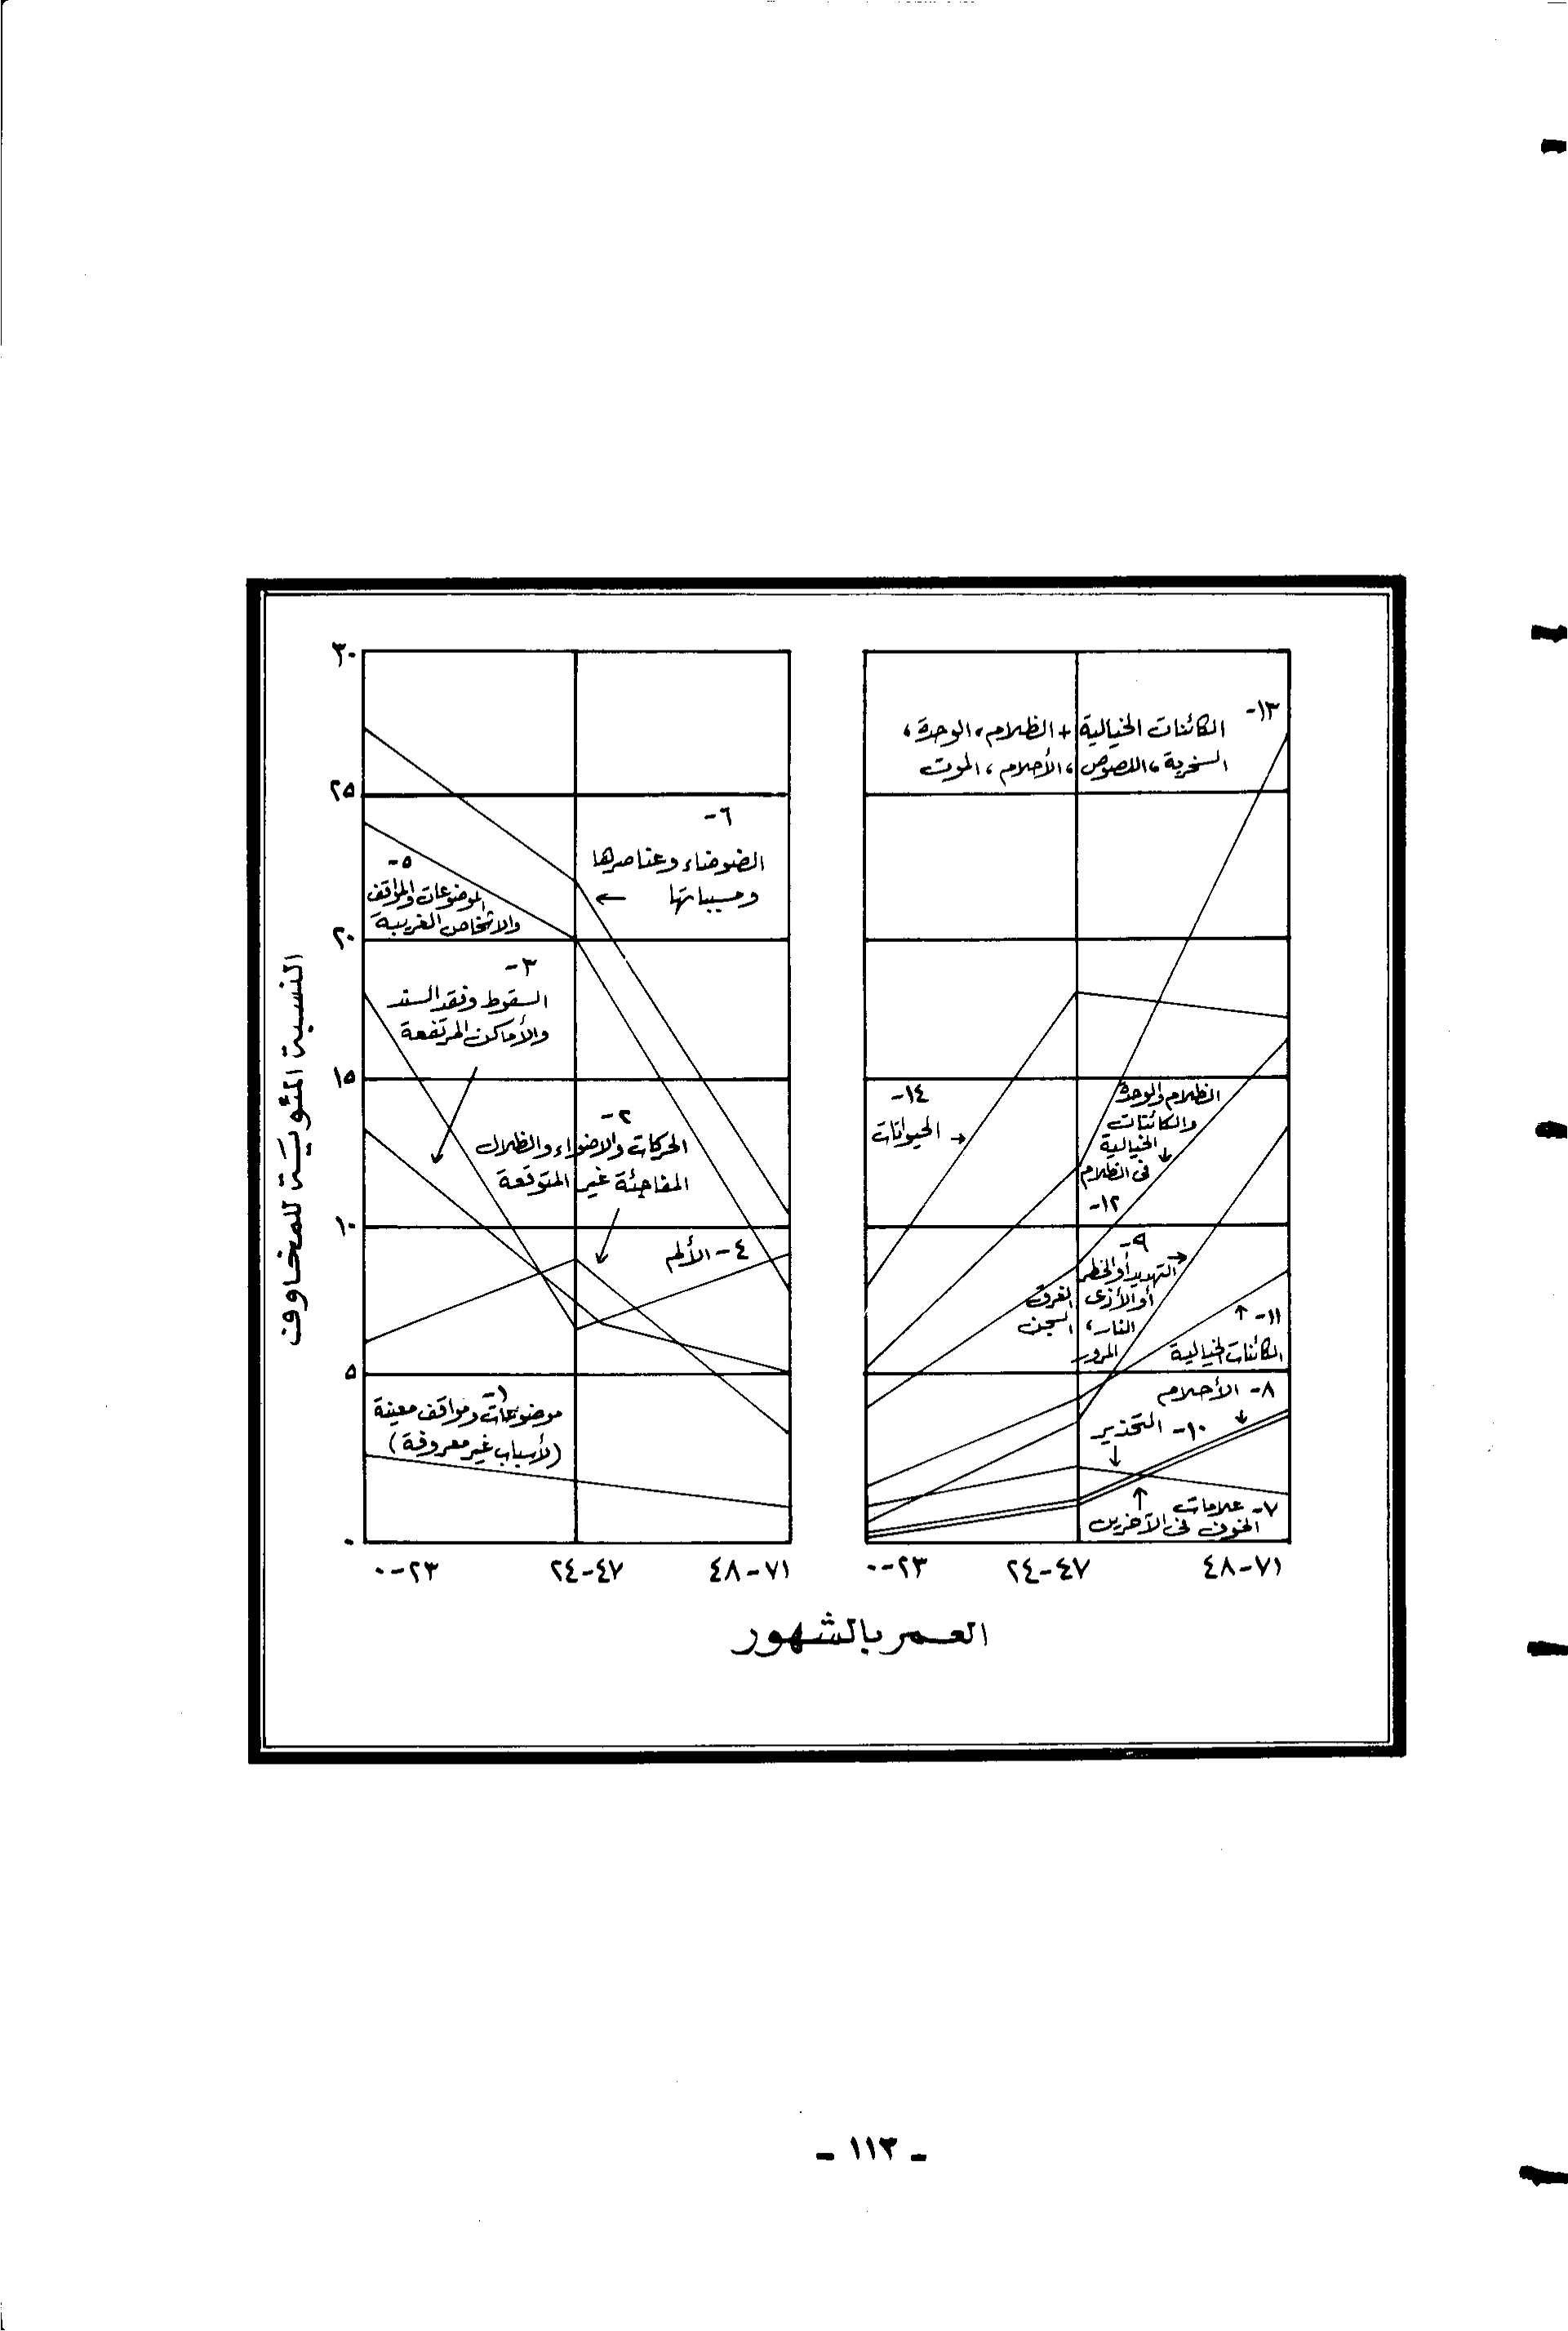 ٣٠
٢٥
٢٠
١٥
١٠
٥
٠
النسبة المئوية للمخاوف
٦-
الضوضاء وعناصرها
ومسبباتها
٥-
الموضوعات والمواقف
والاشخاص الغريبة
٣-
السقوط وفقد السند
والأماكن المرتفعة
٢-
الحركات والاضواء والظلال
المفاجئة غير المتوقعة
٤- الألم
١-
موضوعات ومواقف معينة
(لأسباب غير معروفة)
٠-٢٣
٢٤-٤٧
٤٨-٧١
١٣-
الكائنات الخيالية + الظلام، الوحدة،
السخرية، اللصوص، الأحلام، الموت
١٤-
الحيوانات
الظلام والوحدة
والكائنات
الخيالية
فى الظلام
١٢-
٩-
التهديد أو الخطر
أو الأذى الغرق
النار، السجن
المرور
١١-
الكائنات الخيالية
٨- الأحلام
١٠- التحذير
٧- علامات
الخوف فى الآخرين
٠-٢٣
٢٤-٤٧
٤٨-٧١
العمر بالشهور
- ١١٣ -